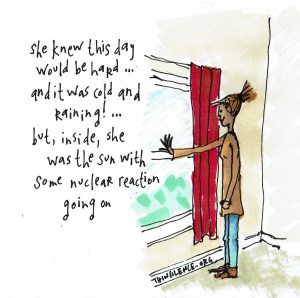 she knew this day
would be hard...
and it was cold and
raining!...
but, inside, she
was the sun with
some nuclear reaction
going on
THINSILENCE.ORG